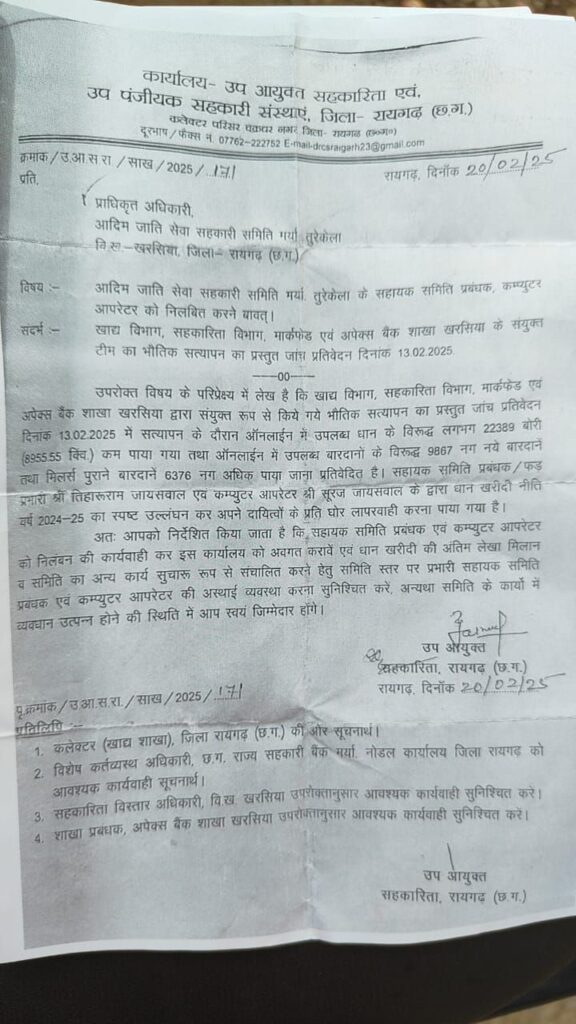 कार्यालय- उप आयुक्त सहकारिता एवं,
उप पंजीयक सहकारी संस्थाएं, जिला- रायगढ़ (छ.ग.)
कलेक्टर परिसर चक्रधर नगर जिला- रायगढ़ (छ०ग०)
दूरभाष / फैक्स नं. 07762-222752 E-mail-drcsraigarh23@gmail.com
क्रमांक / उ.आ.स.रा / साख / 2025 / 171 रायगढ़, दिनाँक 20/02/25
प्रति,
प्राधिकृत अधिकारी,
आदिम जाति सेवा सहकारी समिति मर्या. तुरेकेला
वि.ख.-खरसिया, जिला- रायगढ़ (छ.ग.)
विषय :- आदिम जाति सेवा सहकारी समिति मर्या. तुरेकेला के सहायक समिति प्रबंधक, कम्प्युटर
आपरेटर को निलंबित करने बावत्।
संदर्भ :- खाद्य विभाग, सहकारिता विभाग, मार्कफेड एवं अपेक्स बैंक शाखा खरसिया के संयुक्त
टीम का भौतिक सत्यापन का प्रस्तुत जांच प्रतिवेदन दिनांक 13.02.2025.
-----00-----
उपरोक्त विषय के परिप्रेक्ष्य में लेख है कि खाद्य विभाग, सहकारिता विभाग, मार्कफेड एवं
अपेक्स बैंक शाखा खरसिया द्वारा संयुक्त रूप से किये गये भौतिक सत्यापन का प्रस्तुत जांच प्रतिवेदन
दिनांक 13.02.2025 में सत्यापन के दौरान ऑनलाईन में उपलब्ध धान के विरूद्ध लगभग 22389 बोरी
(8955.55 क्वि.) कम पाया गया तथा ऑनलाईन में उपलब्ध बारदानों के विरूद्ध 9867 नग नये बारदानें
तथा मिलर्स पुराने बारदानें 6376 नग अधिक पाया जाना प्रतिवेदित है। सहायक समिति प्रबंधक / फड़
प्रभारी श्री तिहारूराम जायसवाल एवं कम्प्युटर आपरेटर श्री सूरज जायसवाल के द्वारा धान खरीदी नीति
वर्ष 2024-25 का स्पष्ट उल्लंघन कर अपने दायित्वों के प्रति घोर लापरवाही करना पाया गया है।
अतः आपको निर्देशित किया जाता है कि सहायक समिति प्रबंधक एवं कम्प्युटर आपरेटर
को निलंबन की कार्यवाही कर इस कार्यालय को अवगत करावें एवं धान खरीदी की अंतिम लेखा मिलान
व समिति का अन्य कार्य सुचारू रूप से संचालित करने हेतु समिति स्तर पर प्रभारी सहायक समिति
प्रबंधक एवं कम्प्युटर आपरेटर की अस्थाई व्यवस्था करना सुनिश्चित करें, अन्यथा समिति के कार्यो में
व्यवधान उत्पन्न होने की स्थिति में आप स्वयं जिम्मेदार होंगे।
उप आयुक्त
सहकारिता, रायगढ़ (छ.ग.)
पृ.क्रमांक / उ.आ.स.रा. / साख / 2025 / 171 रायगढ़, दिनाँक 20/02/25
प्रतिलिपि :-
1. कलेक्टर (खाद्य शाखा), जिला रायगढ़ (छ.ग.) की ओर सूचनार्थ।
2. विशेष कर्तव्यस्थ अधिकारी, छ.ग. राज्य सहकारी बैंक मर्या. नोडल कार्यालय जिला रायगढ़ को
आवश्यक कार्यवाही सूचनार्थ।
3. सहकारिता विस्तार अधिकारी, वि.ख. खरसिया उपरोक्तानुसार आवश्यक कार्यवाही सुनिश्चित करें।
4. शाखा प्रबंधक, अपेक्स बैंक शाखा खरसिया उपरोक्तानुसार आवश्यक कार्यवाही सुनिश्चित करें।
उप आयुक्त
सहकारिता, रायगढ़ (छ.ग.)